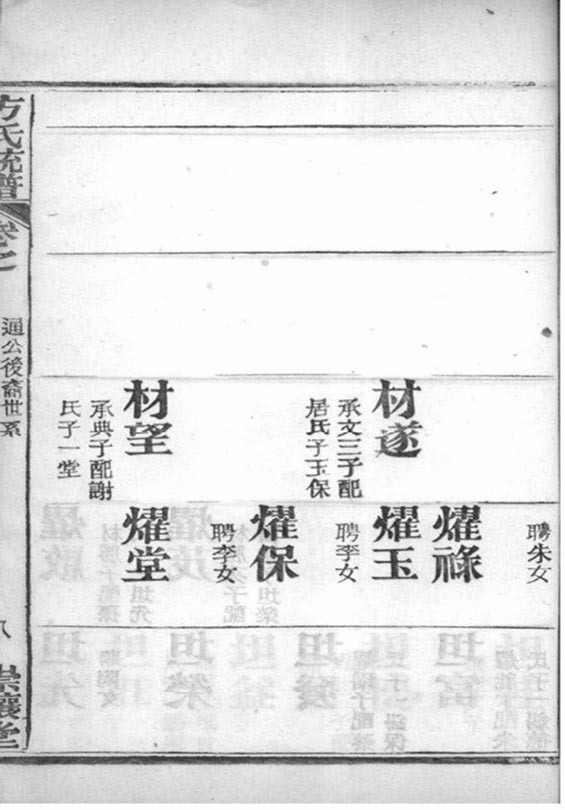 材遂
承文三子配
居氏子玉保
材望
承典子配謝
氏子一堂
聘朱女
燿祿
燿玉
聘李女
燿保
聘李女
燿堂
方氏統譜
卷之
通公後裔世系
八